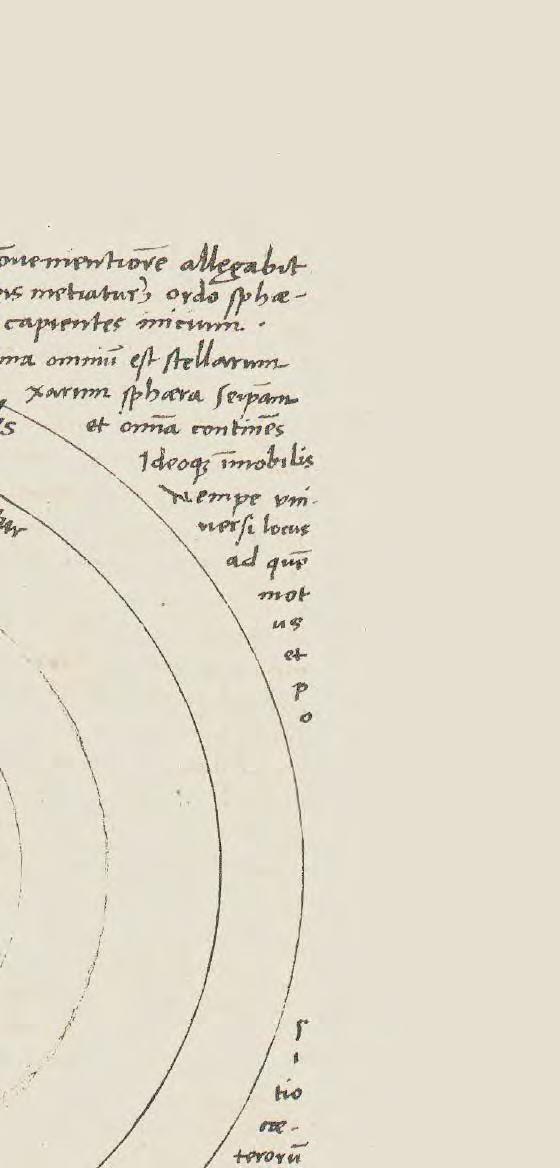 conuenientiorē allegabit
metiatur ordo sphæ-
capientes inicium ·
ma omniū est stellarum
xarum sphæra seip̄am
et omĩa continēs
Ideoqꝫ ĩmobilis
Nempe vni-
uersi locus
ad quē
mot
us
et
p
o
s
i
tio
cæ-
terorū